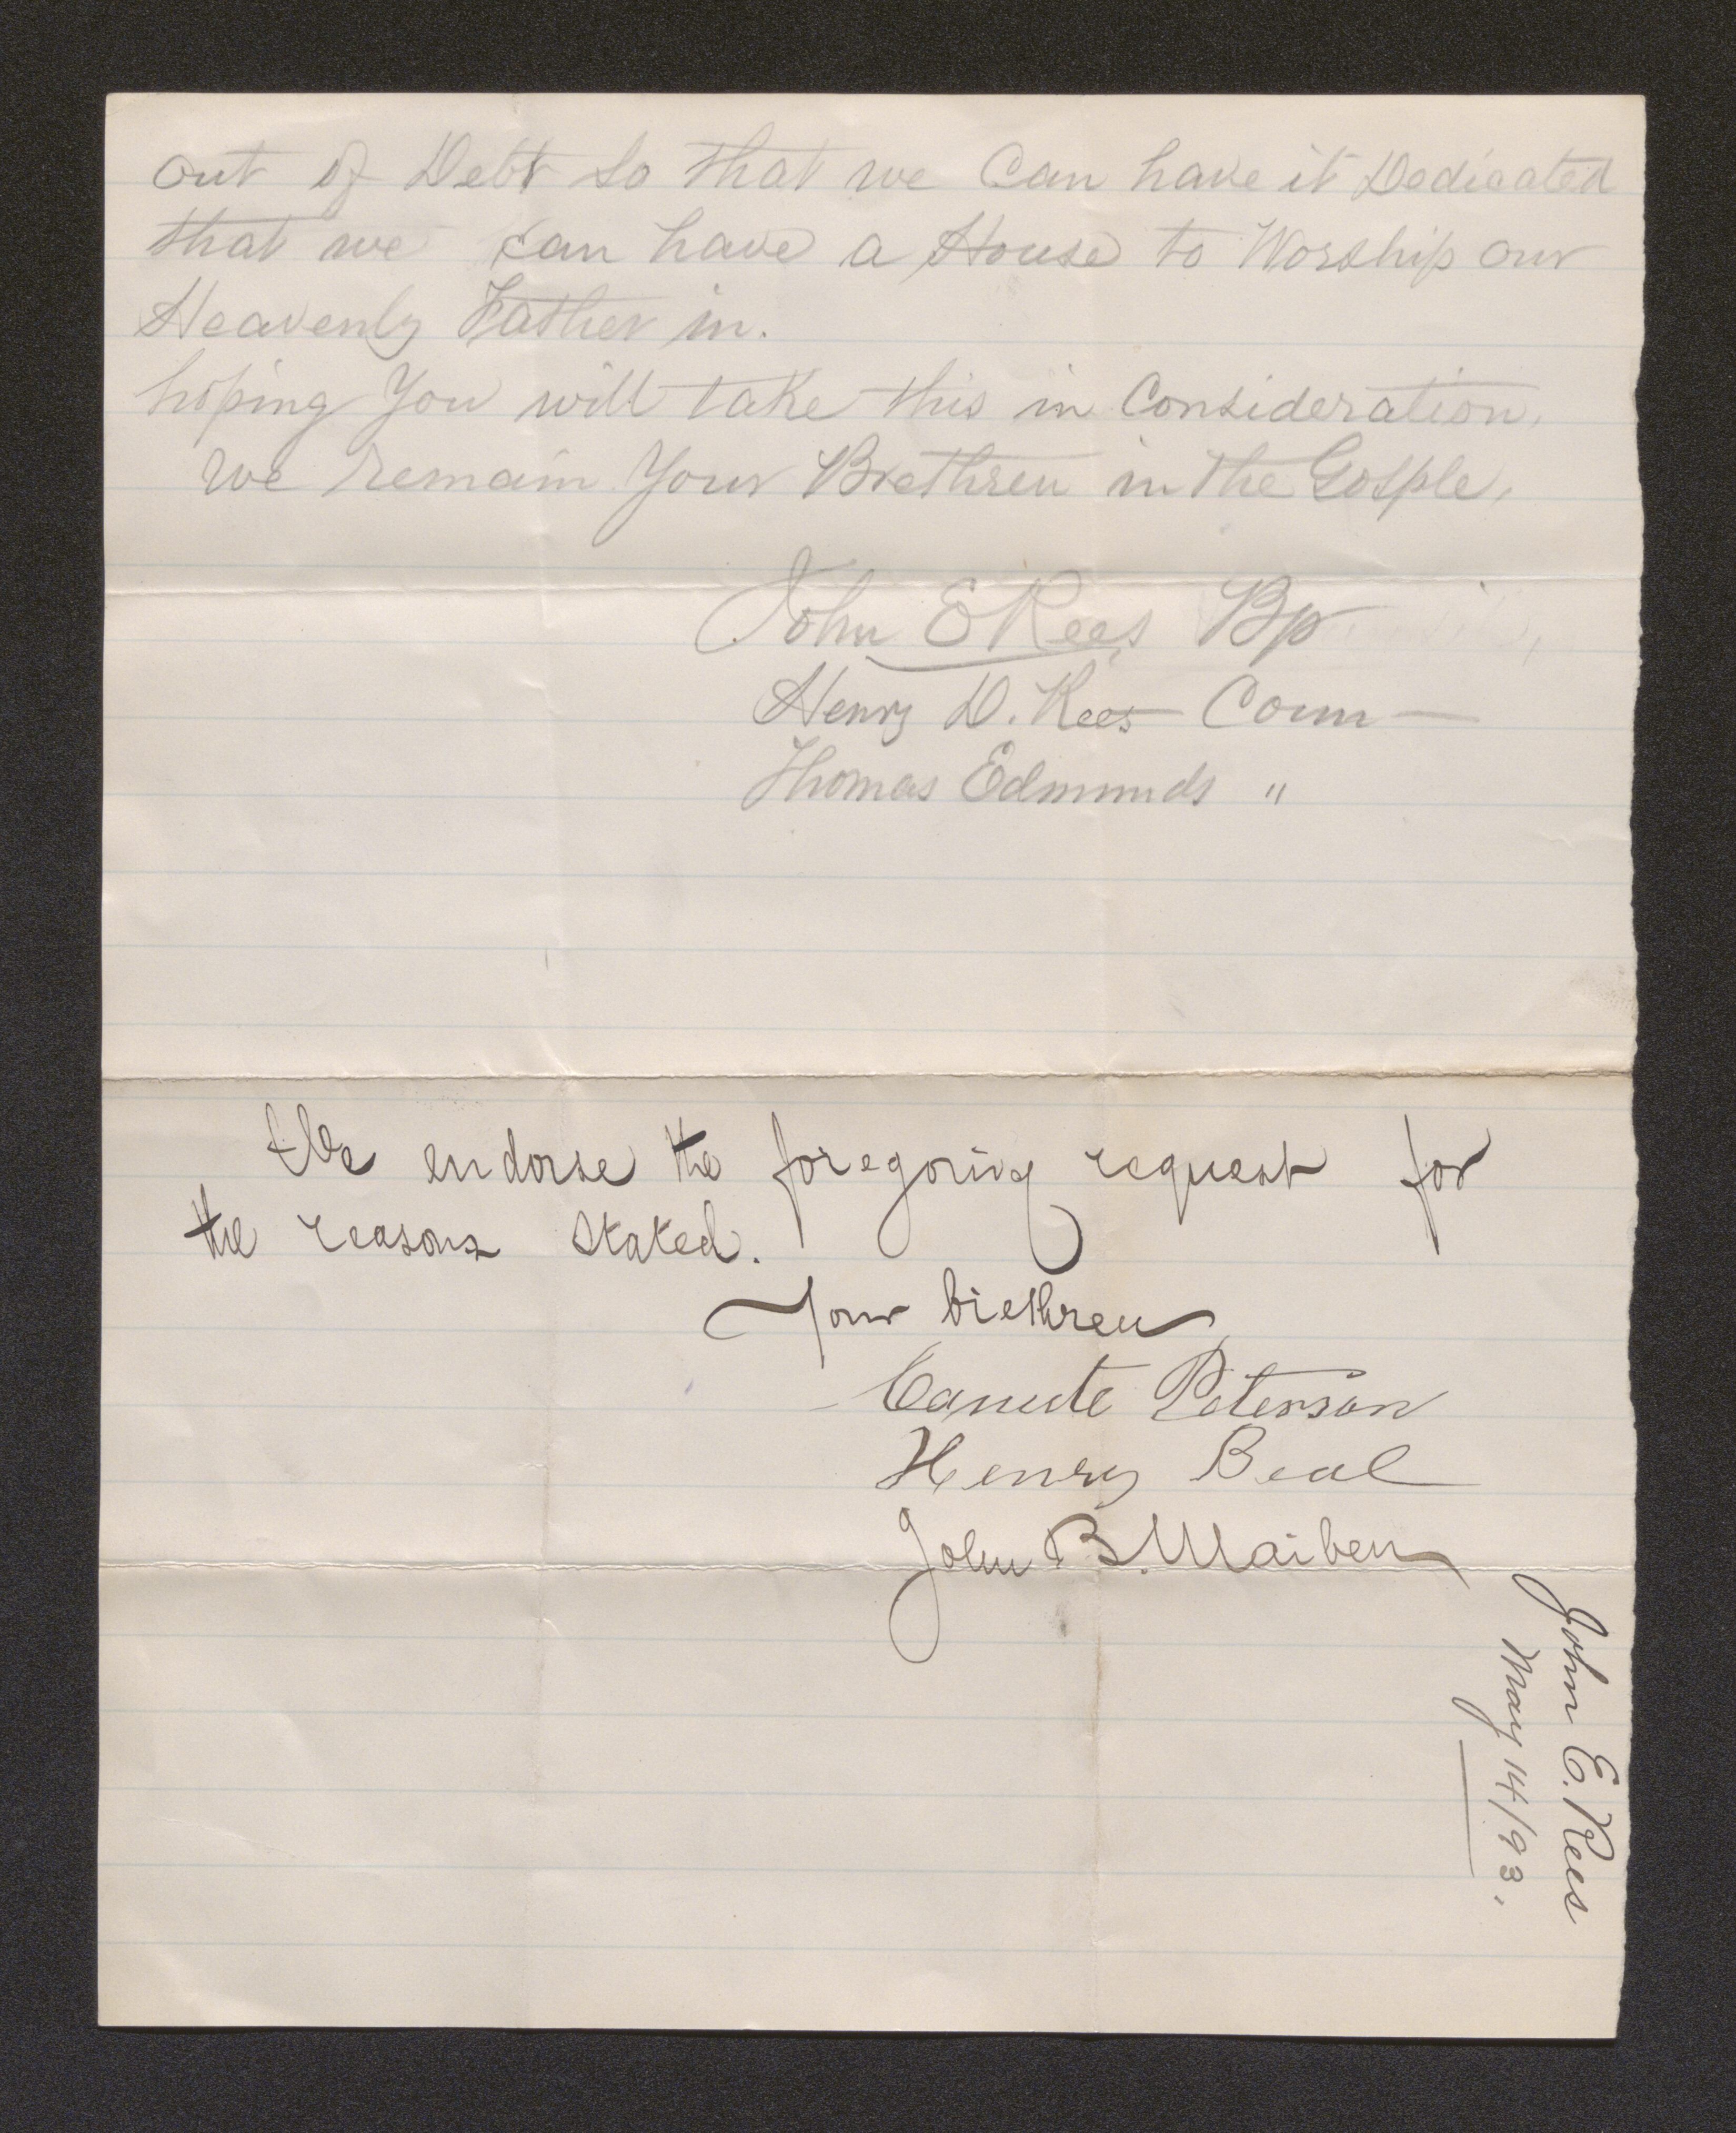 out of Debt so that we Can have it Dedicated
that we can have a House to Worship our
Heavenly Father in.
hoping You will take this in Consideration,
we remain Your Brethren in the Gosple,
John E Rees Bp
Henry D. Rees Coun
Thomas Edmunds "
We endorse the foregoing request for
the reasons stated.
Your brethren
Canute Peterson
Henry Beal
John B. Maiben
John E. Rees
May 14/93.